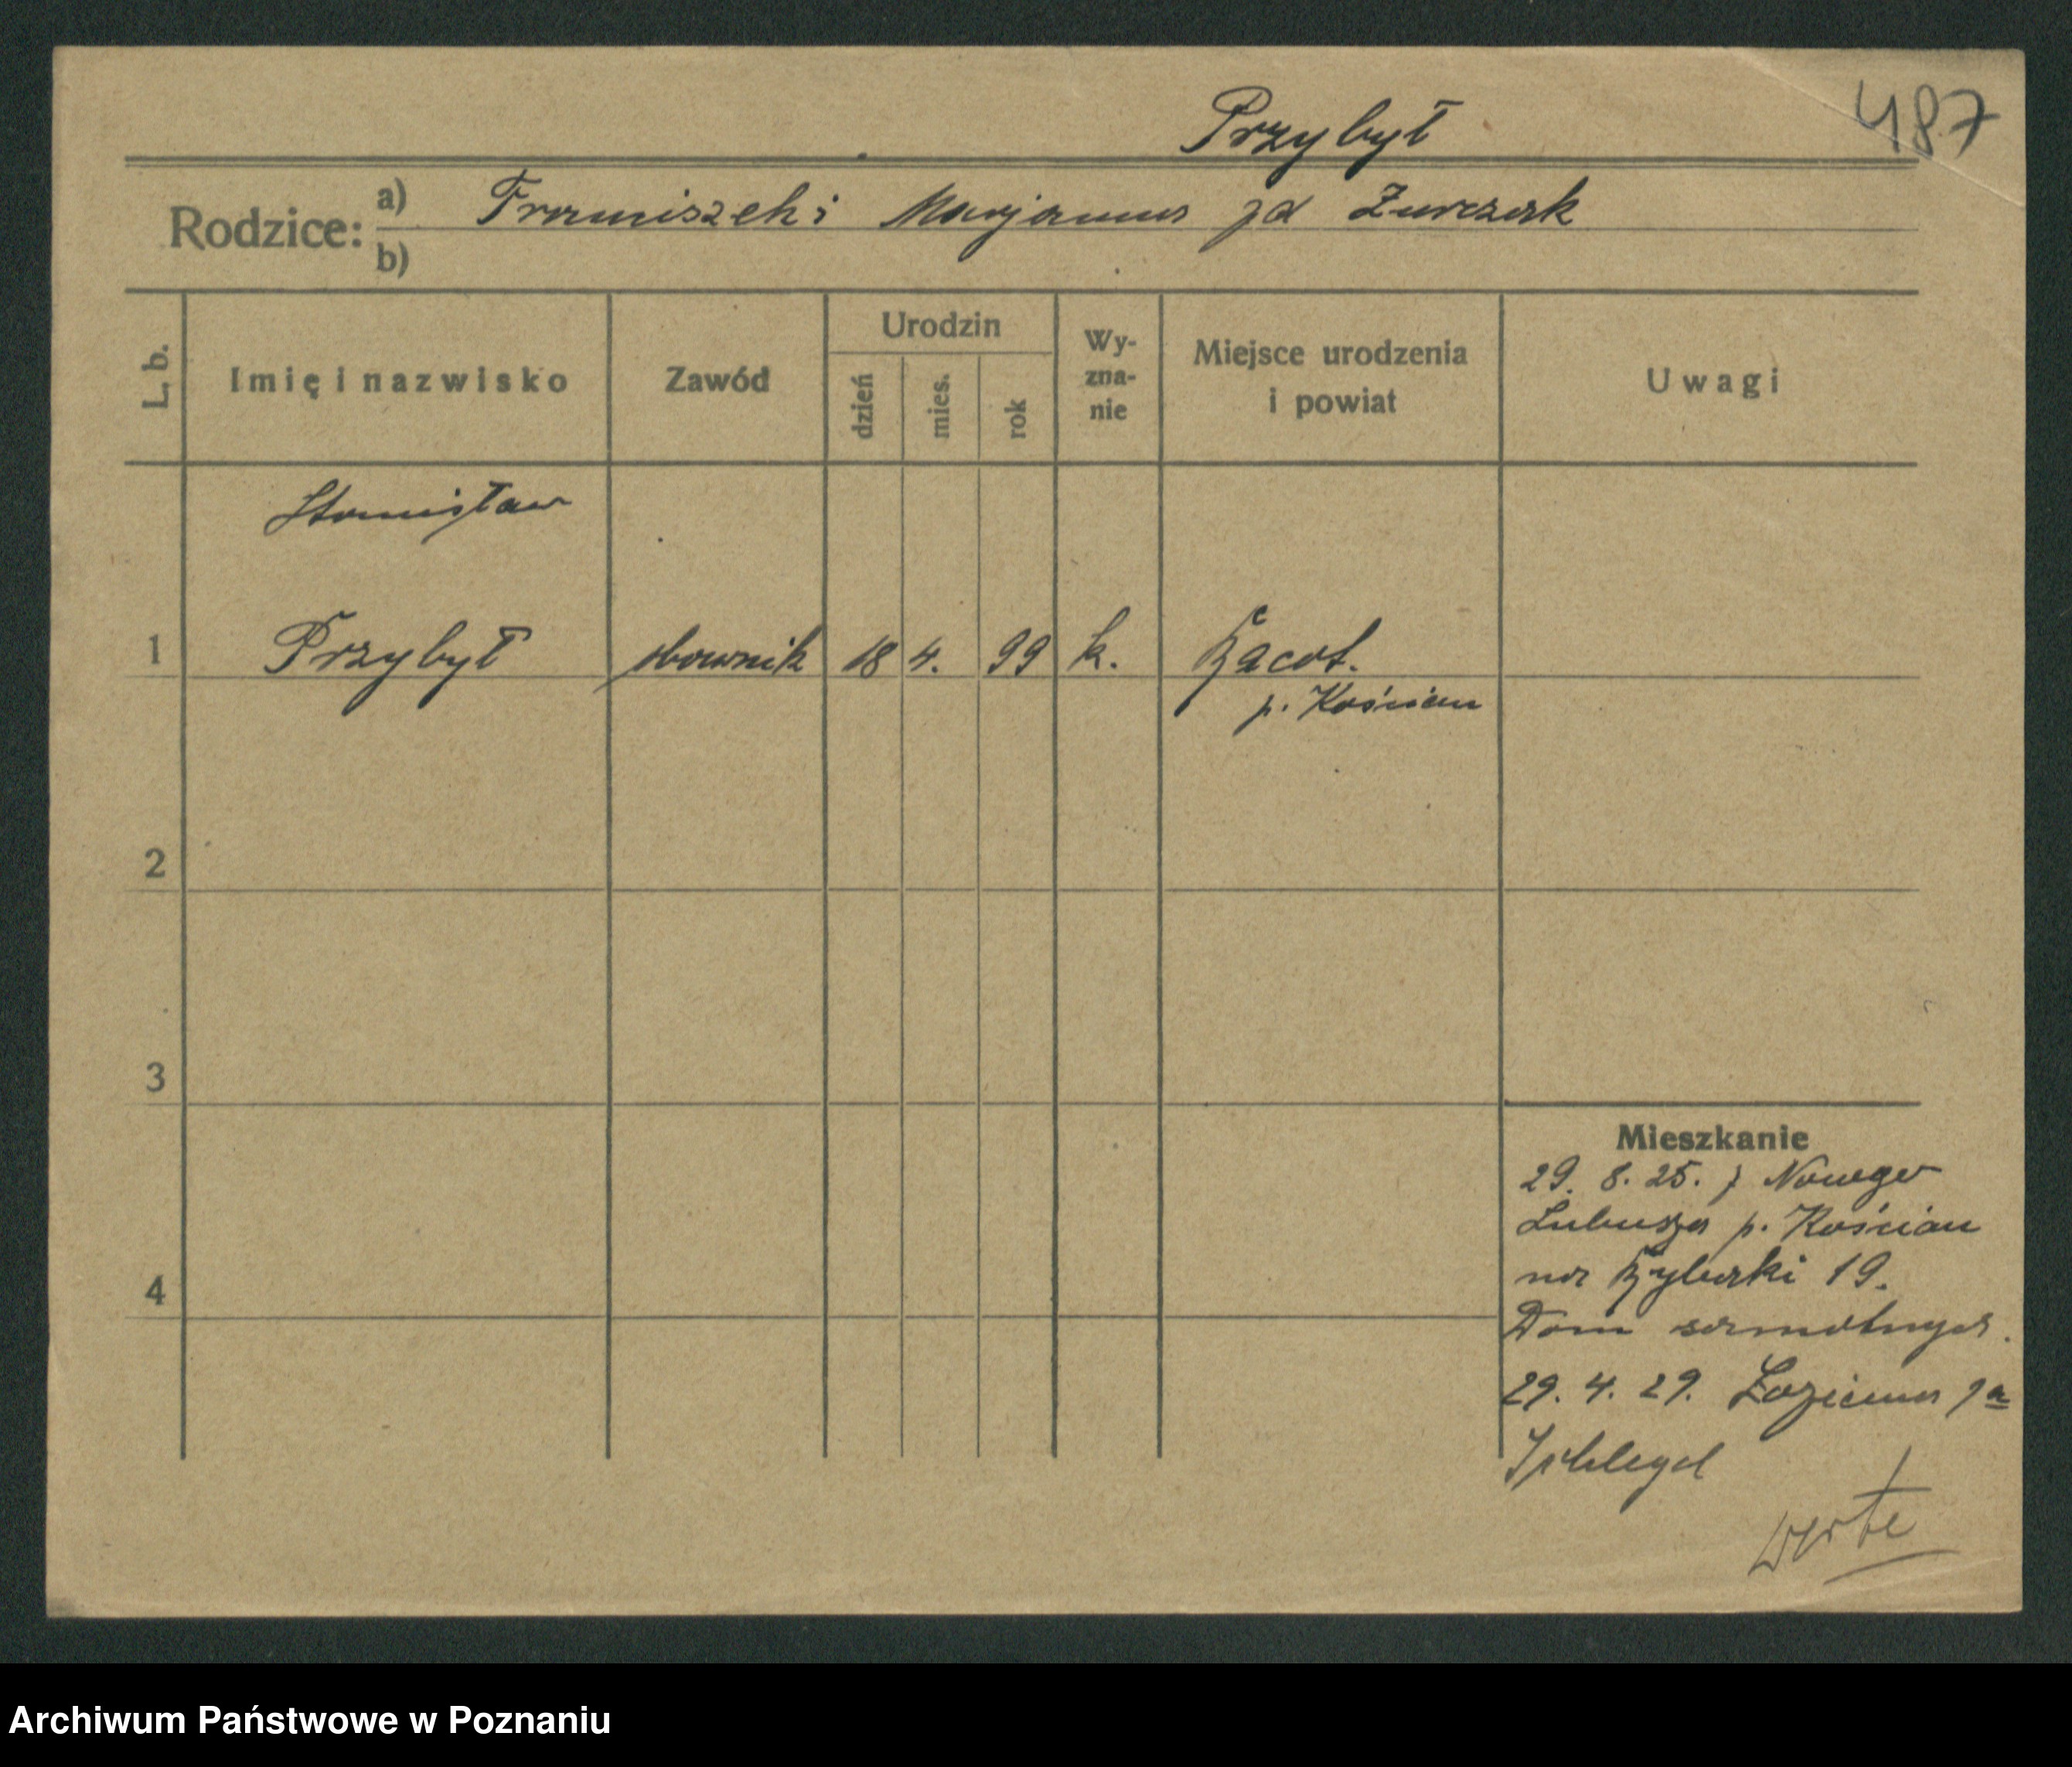 Przybył
487
Rodzice: a) Franciszek i Marjanna zd Żurczak
b)
L. b. Imię i nazwisko Zawód Urodzin dzień mies. rok Wyznanie Miejsce urodzenia i powiat Uwagi
Stanisław
1 Przybył 18 4. 99 k. Racot.
p. Kościan
2
3
4
Mieszkanie
29. 8. 25. z Nowego
Lubusza p. Kościan
na Rybaki 19.
Dom samotnych.
29. 4. 29. Łazienna 1a
Schlegel
verte
Archiwum Państwowe w Poznaniu